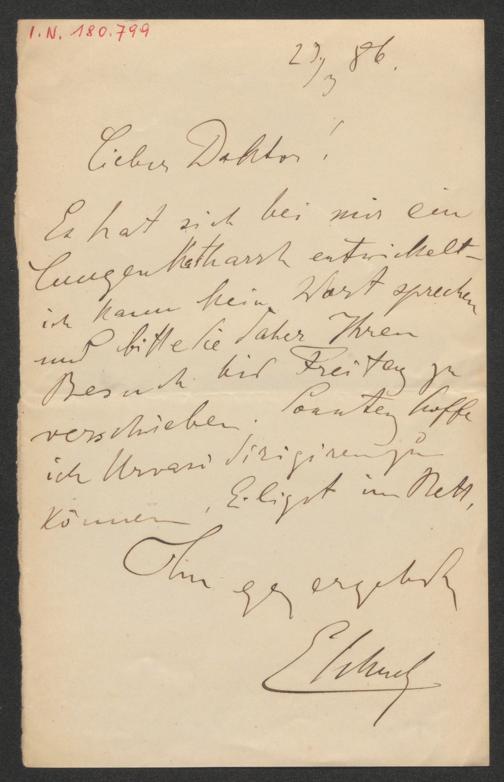 I.N. 180.799
29/3 86.
Lieber Doktor!
Es hat sich bei mir ein
Lungenkatharrh entwickelt –
ich kann kein Wort sprechen
und bitte Sie daher Ihren
Besuch bis Freitag zu
verschieben. Sonntag hoffe
ich Urvasi dirigiren zu
können, Eiligst im Bett,
Ihr ergebenst
ESchuch